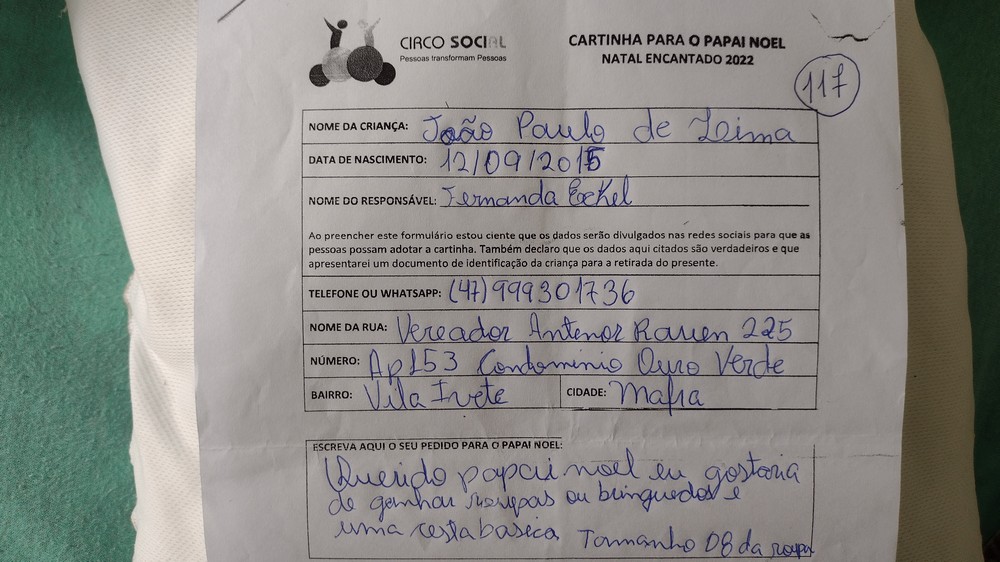 CIRCO SOCIAL
Pessoas transformam Pessoas
CARTINHA PARA O PAPAI NOEL
NATAL ENCANTADO 2022
117
NOME DA CRIANÇA: João Paulo de Leima
DATA DE NASCIMENTO: 12/09/2015
NOME DO RESPONSÁVEL: Fernanda Eckel
Ao preencher este formulário estou ciente que os dados serão divulgados nas redes sociais para que as
pessoas possam adotar a cartinha. Também declaro que os dados aqui citados são verdadeiros e que
apresentarei um documento de identificação da criança para a retirada do presente.
TELEFONE OU WHATSAPP: (47) 999301736
NOME DA RUA: Vereador Antenor Rauen 225
NÚMERO: Ap153 Condominio Ouro Verde
BAIRRO: Vila Ivete CIDADE: Mafra
ESCREVA AQUI O SEU PEDIDO PARA O PAPAI NOEL:
Querido papai noel eu gostaria
de ganhar roupas ou brinquedos e
uma cesta basica Tamanho 08 da roupa